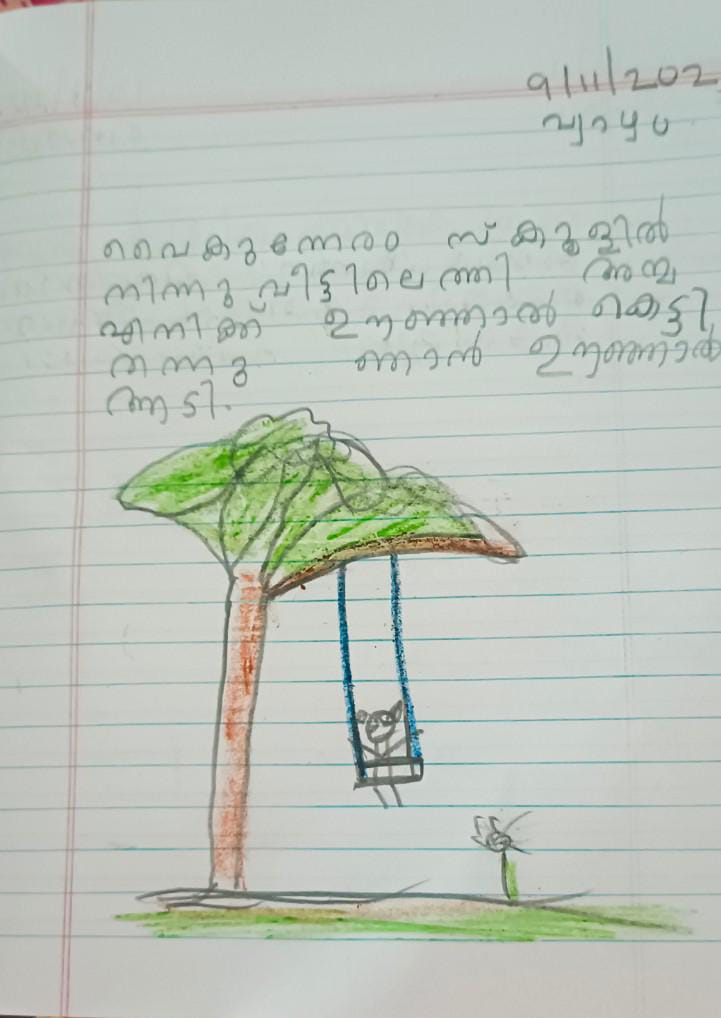 9/11/202
വ്യാഴം
വൈകുന്നേരം സ്കൂളിൽ
നിന്നു വീട്ടിലെത്തി അമ്മ
എനിക്ക് ഊഞ്ഞാൽ കെട്ടി
തന്നു ഞാൻ ഊഞ്ഞാൽ
ആടി.